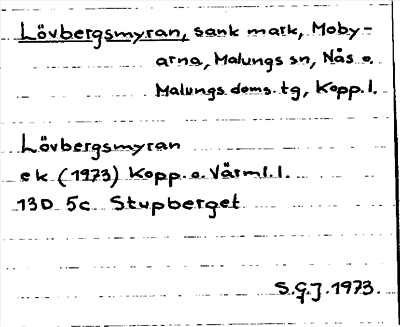 Lövbergsmyran, sank mark, Moby-
arna, Malungs sn, Nås o.
Malungs doms. tg, Kopp. l.
Lövbergsmyran
ek (1973) Kopp. o. Värml. l.
13D 5c Stupberget
S.G.J. 1973.